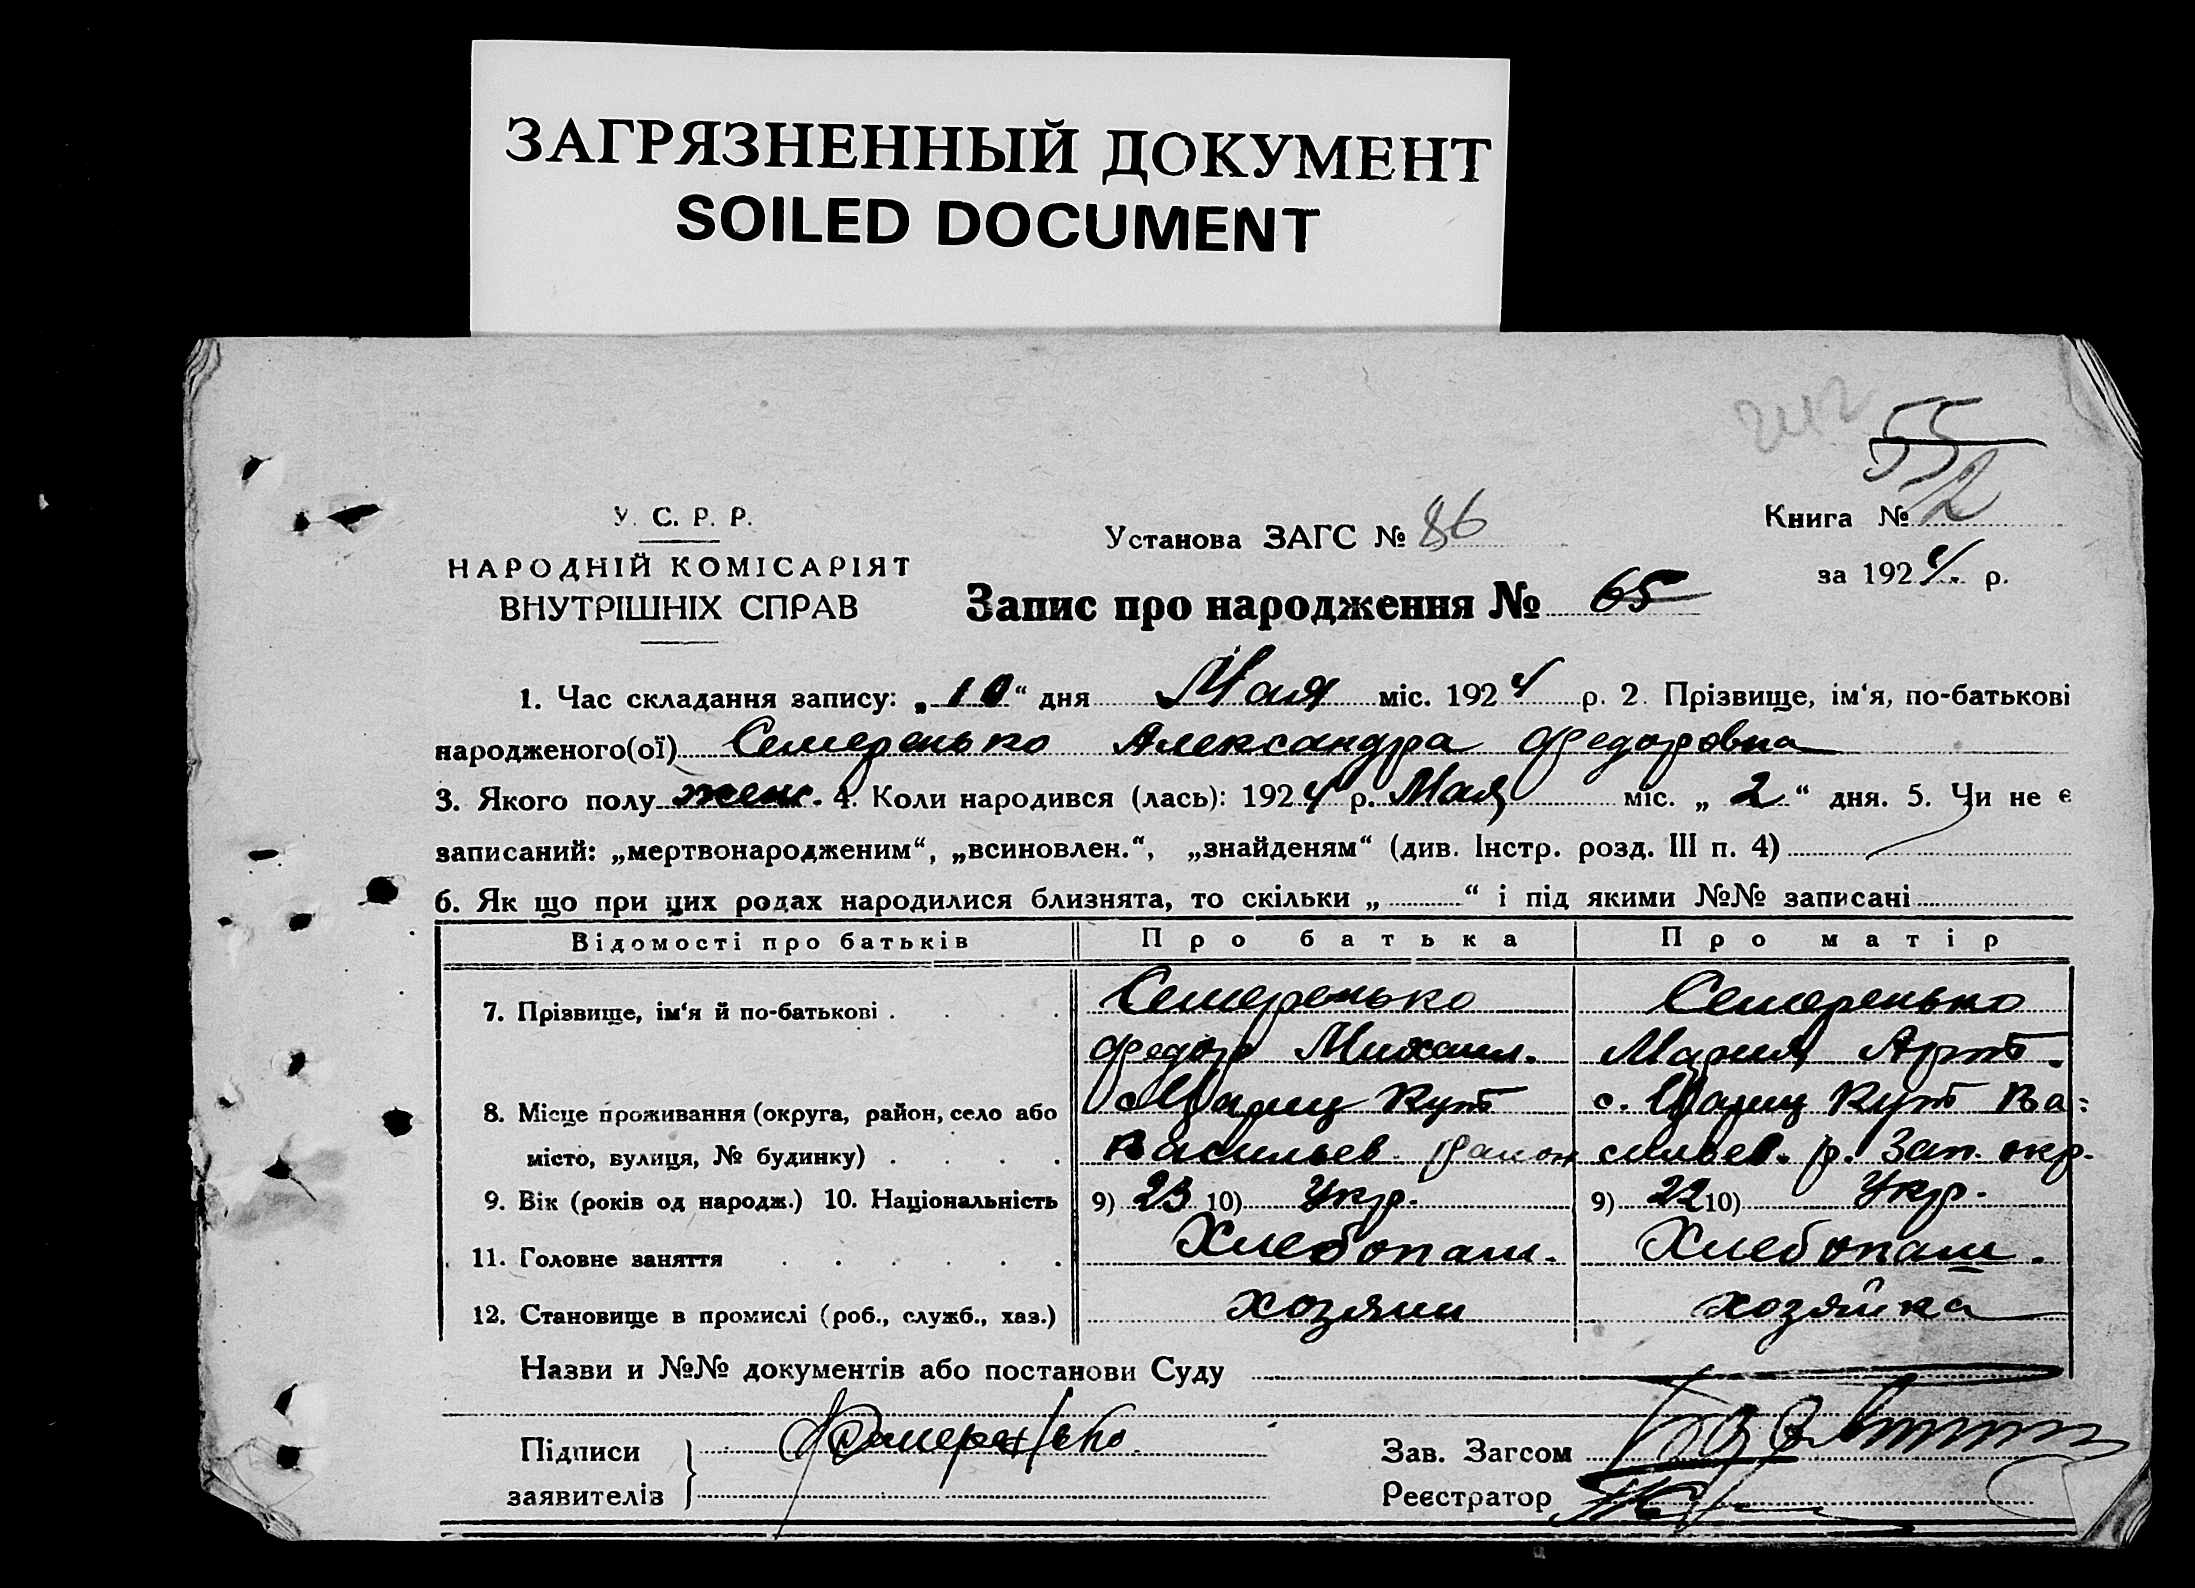 ЗАГРЯЗНЕННЫЙ ДОКУМЕНТ
SOILED DOCUMENT
2412
55
У. С. Р. Р.
НАРОДНІЙ КОМІСАРІЯТ
ВНУТРІШНІХ СПРАВ
Установа ЗАГС № 86
Книга № 2
за 1924. р.
Запис про народження № 65
1. Час складання запису: „10“ дня Мая міс. 1924 р. 2. Прізвище, ім‘я, по-батькові
народженого(ої) Семеренько Александра Федоровна
3. Якого полу жен. 4. Коли народився (лась): 1924 р. Мая міс. „2“ дня. 5. Чи не є
записаний: „мертвонародженим“, „всиновлен.“, „знайденям“ (див. Інстр. розд. III п. 4)
6. Як що при цих родах народилися близнята, то скільки „ “ і під якими №№ записані
Відомості про батьків Про батька Про матір
7. Прізвище, ім‘я й по-батькові . . . . Семеренько Семеренько
Федор Михаил. Мария Арт.
8. Місце проживання (округа, район, село або с. Цариц Кут с. Цариц Кут Ва=
місто, вулиця, № будинку) . . . . Васильев район сильев. р. Зап. окр.
9. Вік (років од народж.) 10. Національність 9) 23 10) Укр. 9) 22 10) Укр.
11. Головне заняття . . . . . . Хлебопаш. Хлебопаш.
12. Становище в промислі (роб., служб., хаз.) хозяин хозяйка
Назви и №№ документів або постанови Суду
Підписи
заявителів } Семеренько
Зав. Загсом
Реєстратор